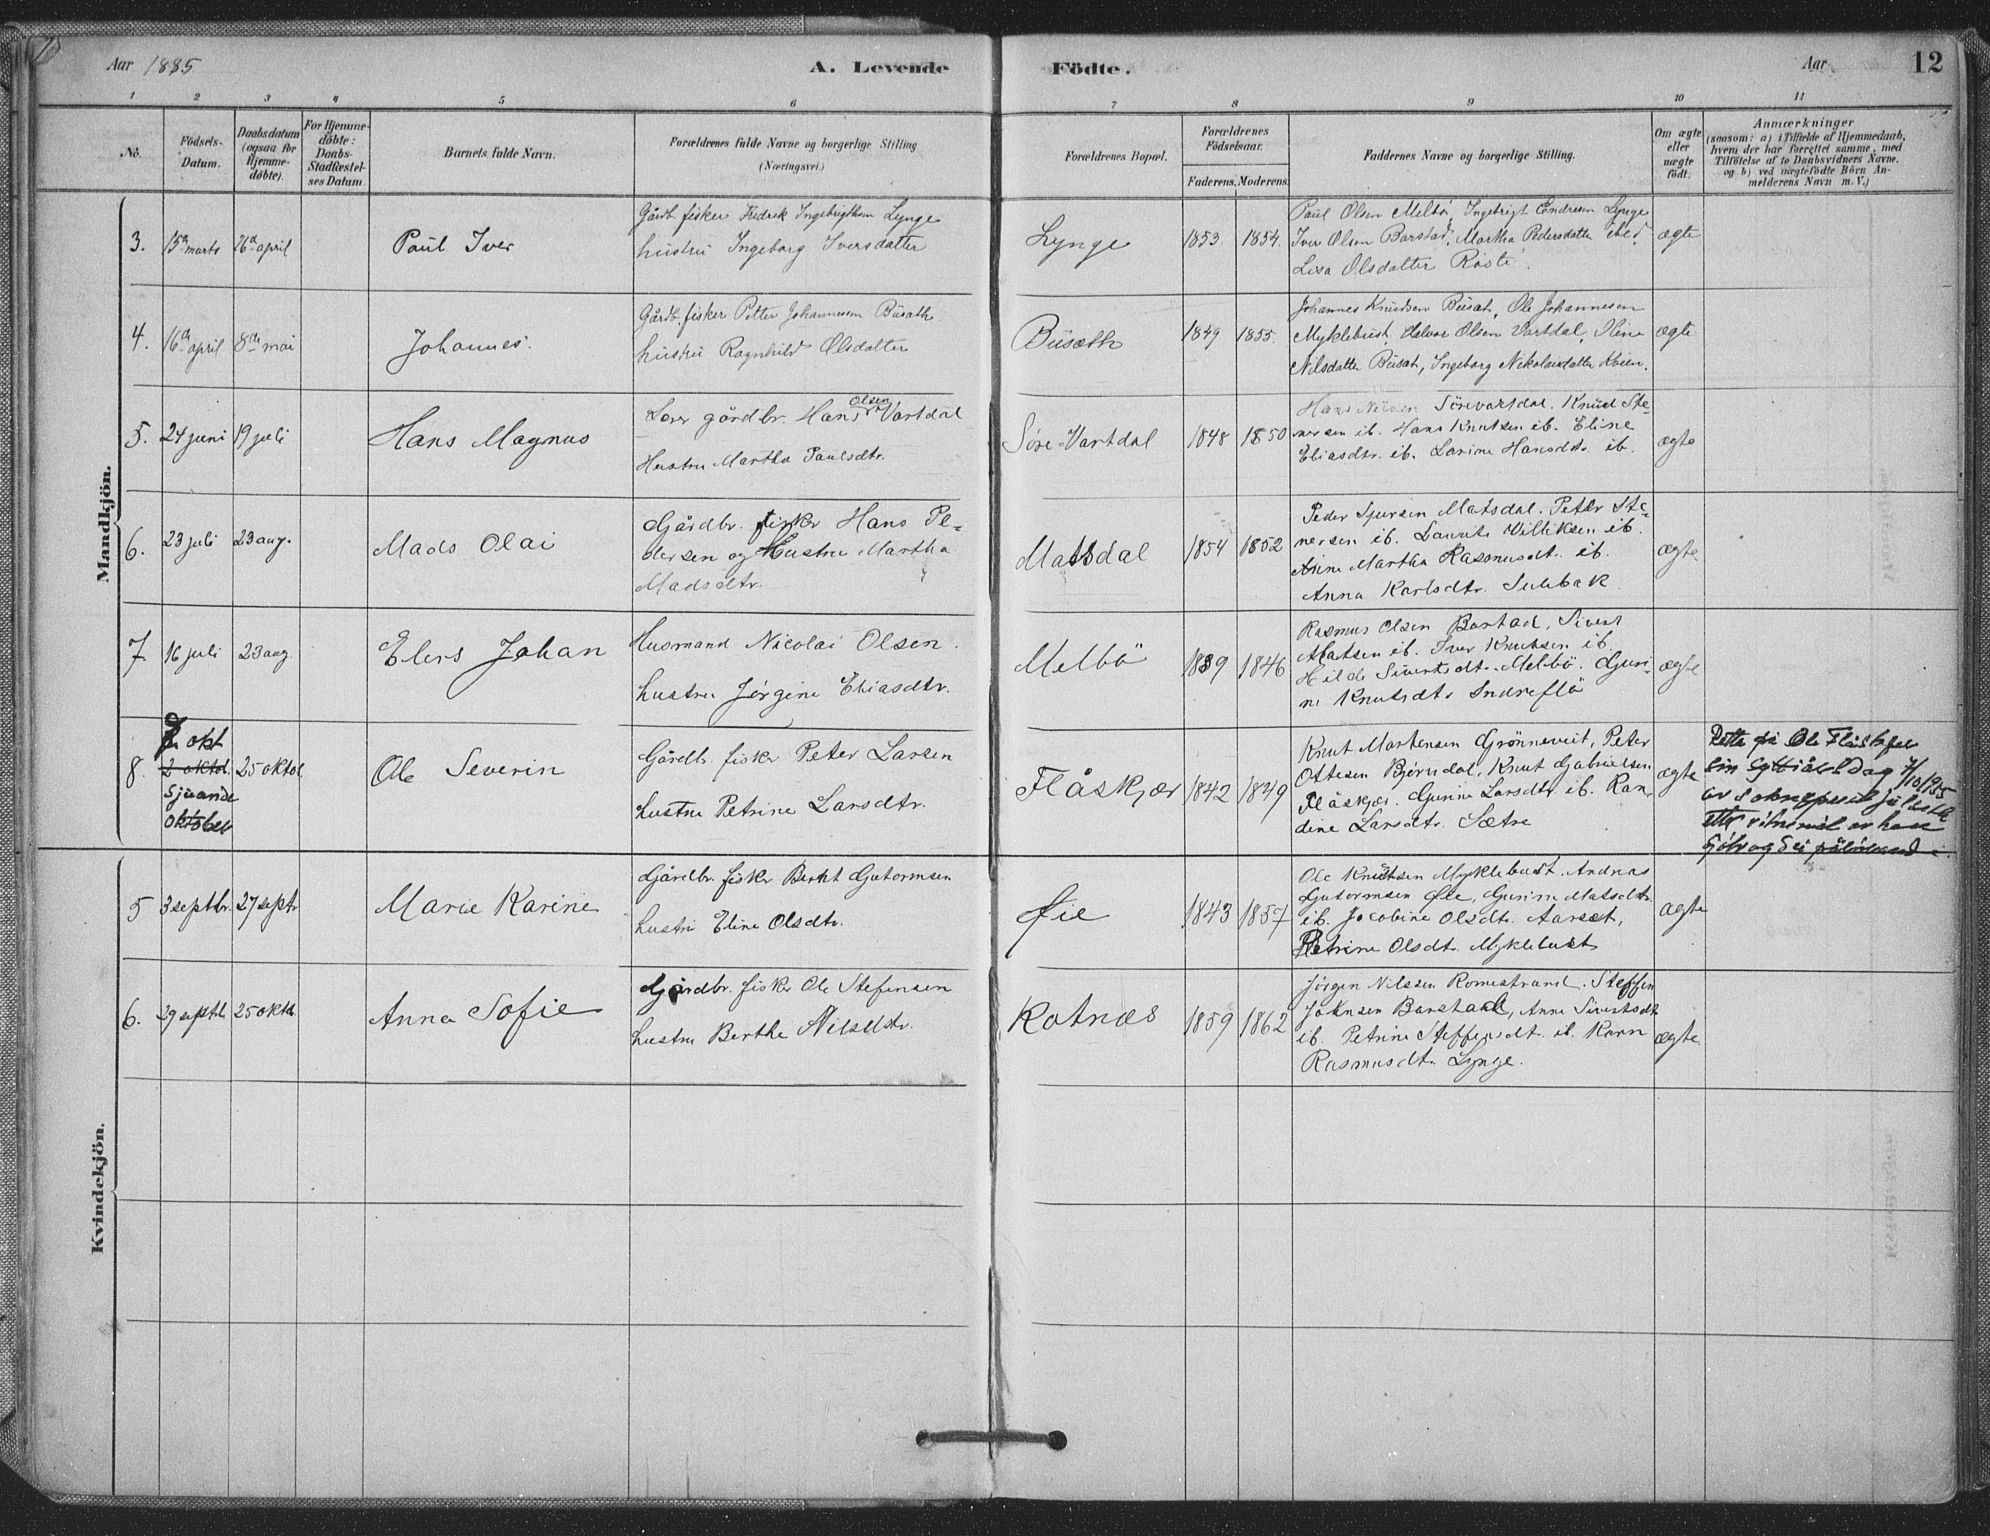 Aar 1885
A. Levende Födte.
Aar
12
1 2 3 4 5 6 7 8 9 10 11
No.
Födsels-
Datum.
Daabsdatum
(ogsaa for
Hjemme-
döbte).
For Hjemme-
döbte:
Daabs-
Stadfæstel-
ses Datum
Barnets fulde Navn.
Forældrenes fulde Navne og borgerlige Stilling
(Næringsvei.)
Forældrenes Bopæl.
Forældrenes
Födselsaar.
Faderens. Moderens.
Faddernes Navne og borgerlige Stilling.
Om ægte
eller
uægte
födt.
Anmærkninger
(saasom: a) i Tilfælde af Hjemmedaab,
hvem der har forrettet samme, med
Tilföielse af to Daabsvidners Navne.
og b) ved uægtefödte Börn An-
melderens Navn m. V.)
Mandkjön.
3. 15de marts 26de april
Paul Iver
Gårdb. fisker Fredrik Ingebrigtsen Lynge
hustru Ingeborg Iversdatter
Lynge
1853. 1854.
Paul Olsen Melbö, Ingebrigt Endresen Lynge
Iver Olsen Barstad, Martha Pedersdatter ibed,
Lisa Olsdatter Röste.
ægte
4. 16de april 8de mai
Johannes.
Gårdb. fisker Petter Johannesen Busæth
hustru Ragnhild Olsdatter
Busæth
1849 1855.
Johannes Knudsen Busæt, Ole Johannesen
Myklebust, Halvor Olsen Vartdal, Oline
Nilsdatter Busæt, Ingeborg Nikolaisdatter Kvien.
ægte
5. 24 juni 19 juli
Hans Magnus
Lærer gårdbr. Hans Olsen Vartdal
Hustru Martha Paulsdtr.
Søre-Vartdal
1848 1850
Hans Nilsen Sörevartdal. Knud Ste-
nersen ib. Hans Knutsen ib. Eline
Eliasdtr. ib. Larine Hansdtr. ib.
ægte
6. 23 juli 23 aug.
Mads Olai
Gårdbr. fisker Hans Pe-
dersen og Hustru Martha
Madsdtr.
Matsdal
1854 1852
Peder Sjursen Matsdal. Peter Ste-
nersen ib. Laurits Villiksen ib.
Anine Martha Rasmusdt. ib.
Anna Karlsdtr. Sulebak
ægte.
7. 16 juli 23 aug.
Elers Johan
Husmand Nicolai Olsen.
hustru Jörgine Eliasdtr.
Melbö
1839 1846
Rasmus Olsen Barstad, Sivert
Matsen ib. Iver Knutsen ib.
Hilde Sivertsdt. Melbö. Guri-
ne Knutsdt. Indreflö
ægte
8. 7 okt 2 oktob. Sjuande oktober 25 oktob.
Ole Severin
Gårdbr. fisker Peter Larsen
hustru Petrine Larsdtr.
Flåskjær
1842 1849
Knut Mortensen Grönneveit, Peter
Ottesen Bjørndal, Knut Gabrielsen
Flåskjær. Gurine Larsdtr. ib. Ran-
dine Larsdtr. Sætre
ægte
Retta på Ole Flåskjær
sin syttiårsdag 7/10/1955
av soknepresten
etter vitnemål av han
sjølv og
Kvindekjön.
5 3 septbr. 27 septr.
Marie Karine
Gårdbr. fisker Bernt Gutormsen
hustru Eline Olsdtr.
Øie
1843 1857
Ole Knutsen Myklebust. Andreas
Gutormsen Øie, Gurine Matsdtr.
ib. Jocobine Olsdtr. Aarset,
Petrine Olsdt. Myklebust
ægte
6. 29 septb. 25 oktb.
Anna Sofie
Gårdbr. fisker Ole Stefensen
hustru Berthe Nilsdtr.
Kotnæs
1859 1862
Jörgen Nilssen Romestrand. Steffen
Johnsen Barstad, Anne Sivertsdt.
ib. Petrine Steffensdt. ib. Karn
Rasmusdt. Lynge.
ægte.